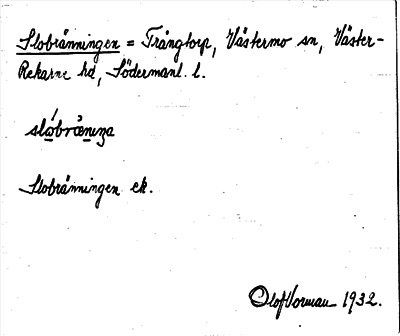 Slobränningen = Trångtorp, Västermo sn, Väster-
Rekarne hd, Södermanl. l.
slóbrä̀niŋa
Slobränningen ek.
Olof Vorman 1932.